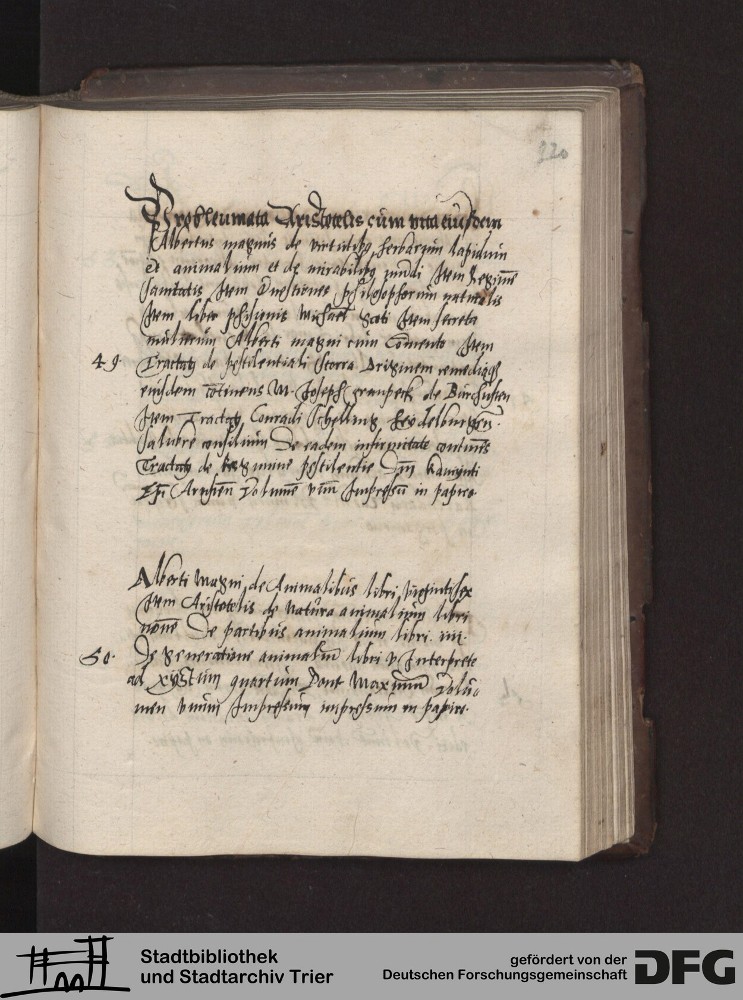 220
Probleumata Aristotelis cum vita eiusdem
Albertus magnus de virtutibus herbarum lapidum
et animalium et de mirabilibus mundi Item Regimen
sanitatis Item Questiones philosophorum naturalis
Item liber phisionomis Michael Scoti Item secreta
mulierum Alberti magni cum Comento Item
49. Tractatus de pestilentiali Scorra Originem remediaque
eiusdem continens M. Joseph Grunpeck de Burckhusen
Item Tractatus Conradi Schelling Heydelburgen.
Salubre consilium De eadem infirmitate continens
Tractatus de Regimine pestilentie Dni Kaminti
Epi Arusien Volumen unum Impressum in papiro.
Alberti Magni de Animalibus libri vigintisex
Item Aristotelis de natura animalium libri
nouem De partibus animalium libri. iiii.
50. De generatione animalium libri v Interprete
ad Xystum quartum Pont Maximum Volu-
men unum Impressum impressum in papiro.
Stadtbibliothek
und Stadtarchiv Trier
gefördert von der
Deutschen Forschungsgemeinschaft
DFG